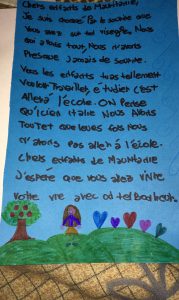 Chers enfants de Mauritanie,
Je suis choqué Par le sourire que
Vous avez sur tel visages, Nous
qui avons tout, Nous n'avons
Presque Jamais de sourire.
Vous les enfants tellement
Vouloir Travailler, étudier c'est
Allera l'école. ON Pense
Qu'ici en Nous Avons
Tout et que leurs fois Nous
n'avons pas aller à l'école.
Chers enfants de Mauritanie
J'espère que vous allez Vivre
Votre vie avec